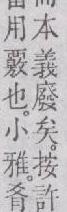 而本義廢矣。按許
當用覈也。小雅。肴